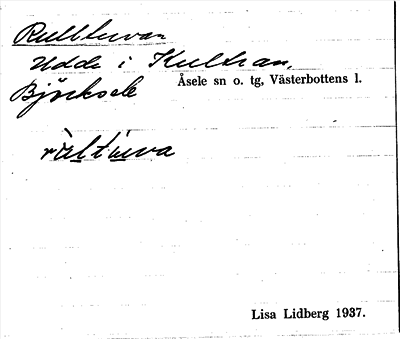 Rulltuvan
Udde i Kultran,
Björksele Åsele sn o. tg, Västerbottens l.
Lisa Lidberg 1937.